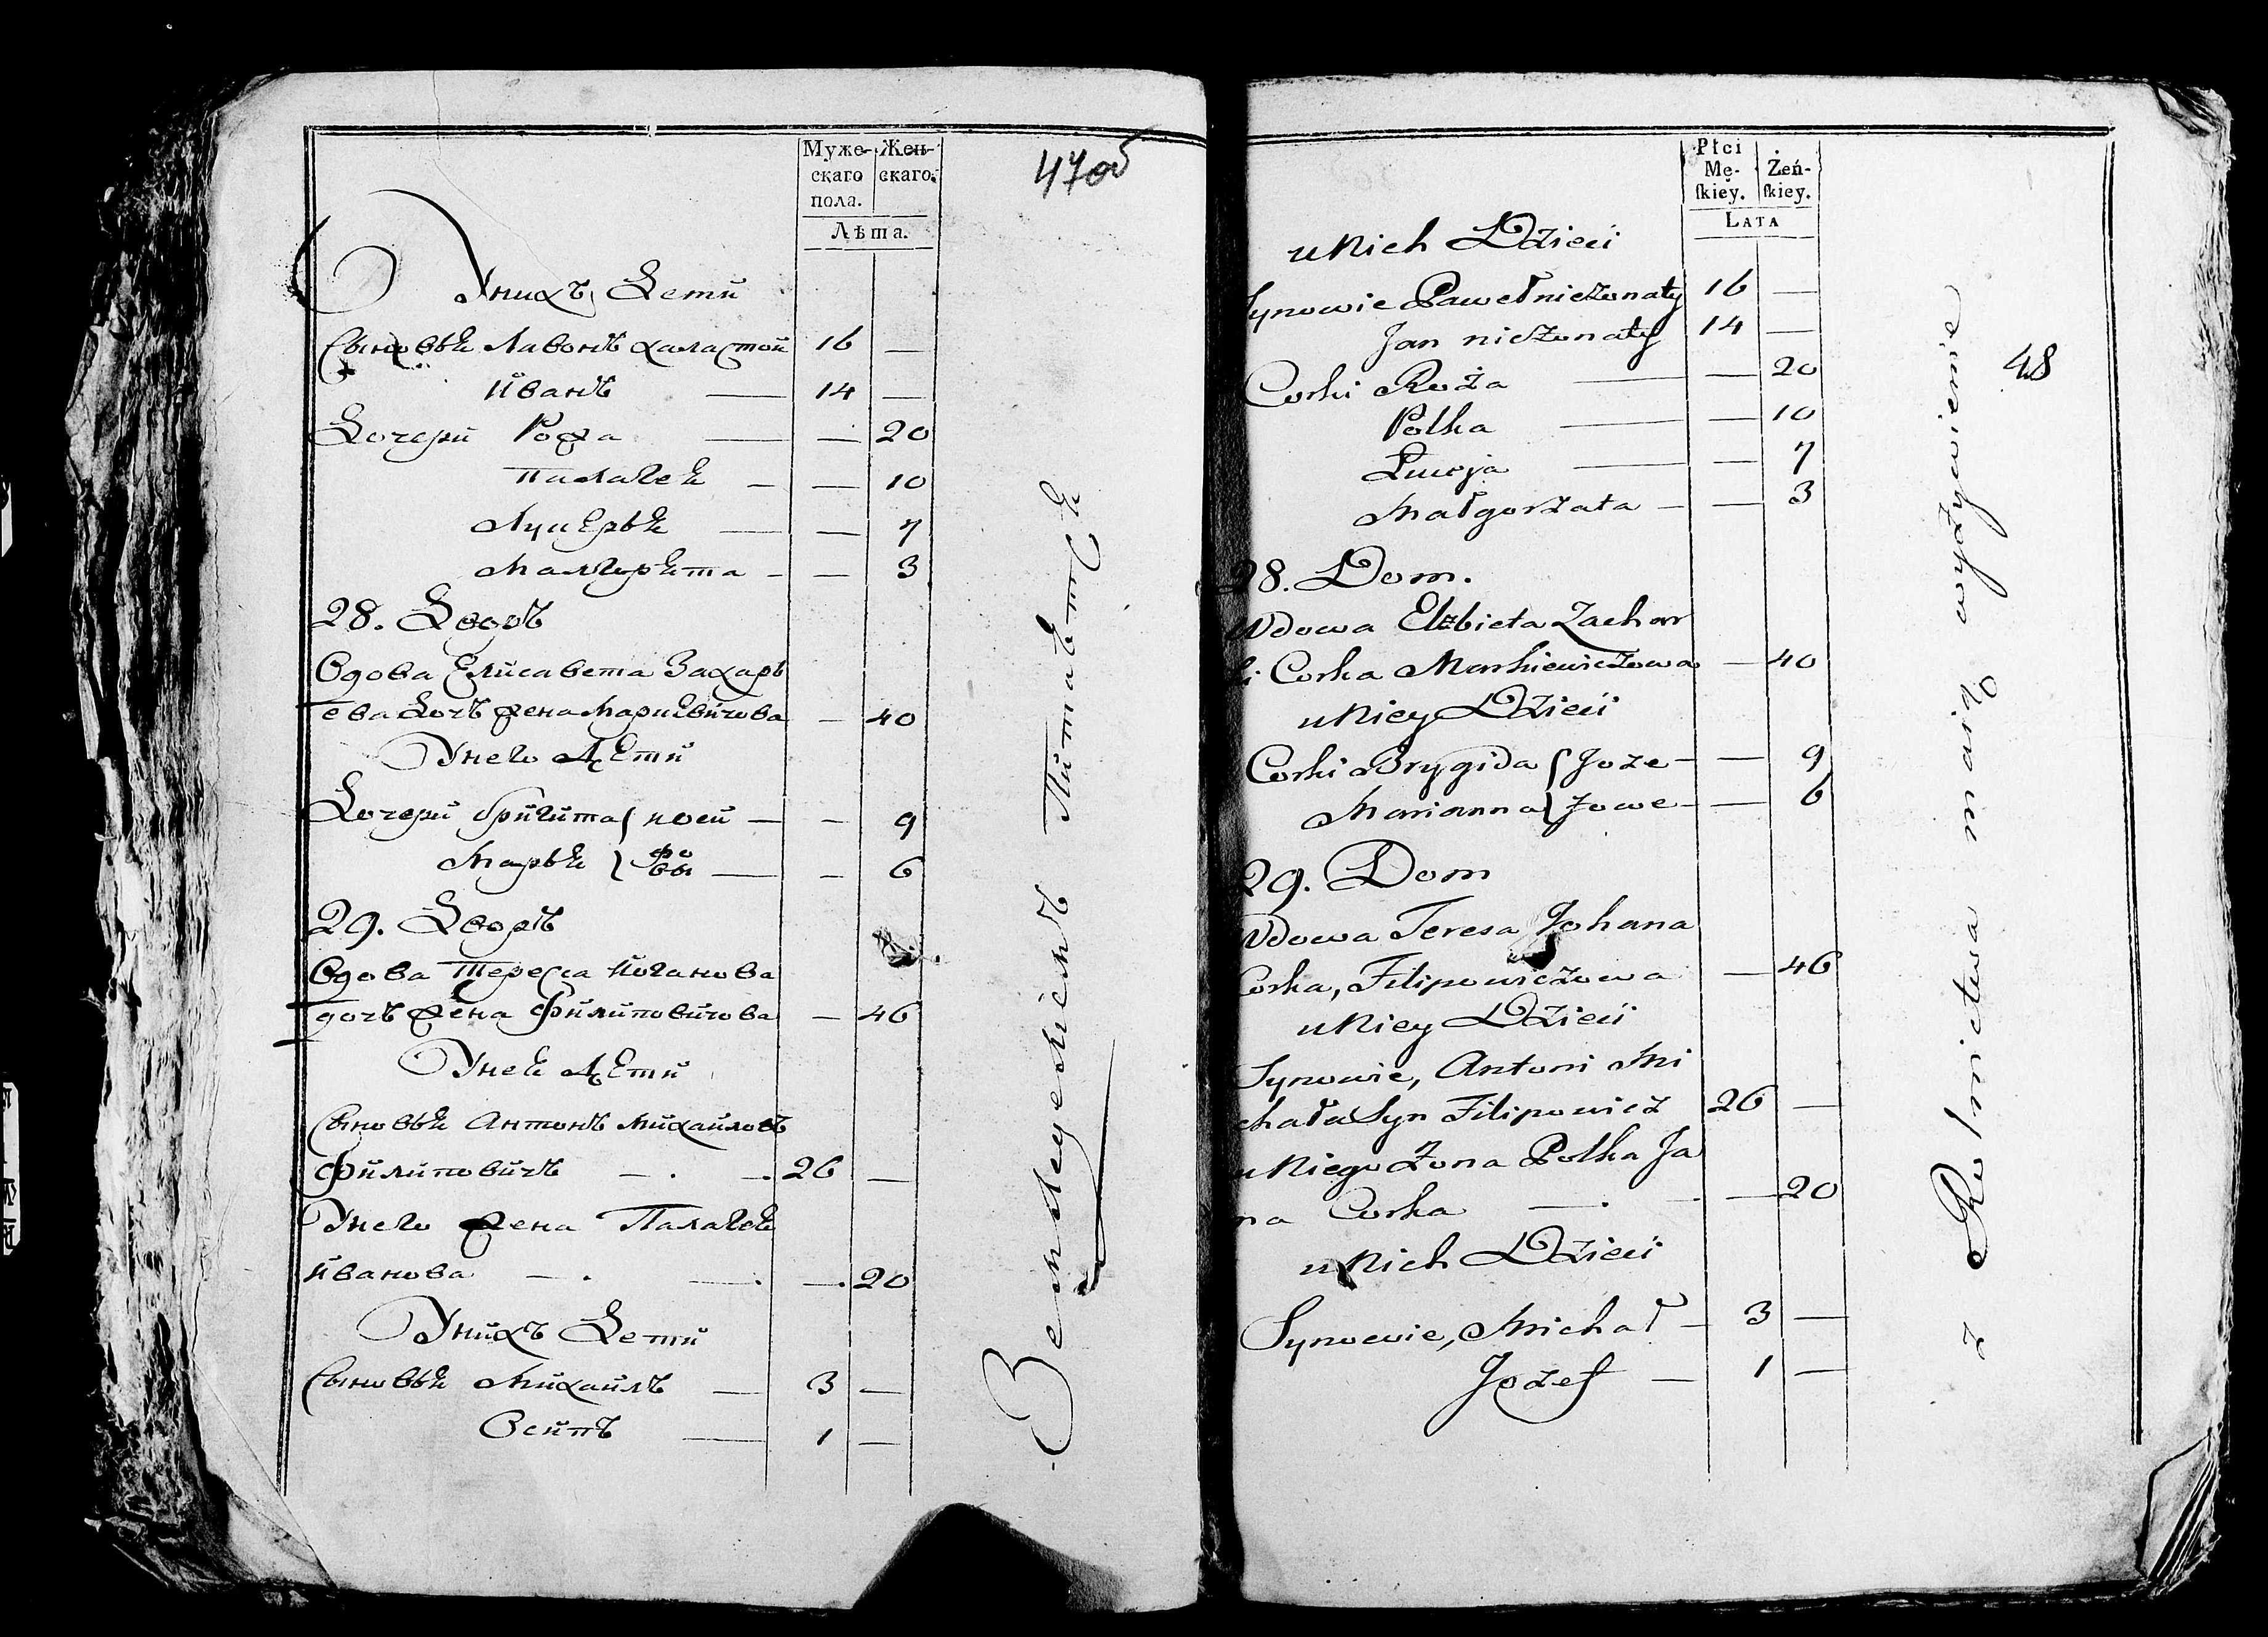 Муже-
скаго
пола.
Жен-
скаго.
Лѣта.
47об
Унихъ Дети
Сыновья холастои 16 —
Иванъ — 14 —
Дочери Рожа — — 20
Палагея — — 10
Луцея — — 7
Малгорета — — 3
28. Дворъ
Вдова Елисавета Захарь
ева дочь жена Маркевичова — 40
Унего дѣти
Дочери Бригита — — 9
Марья — — 6
29. Дворъ
Вдова Тереса Иоганова
дочь жена Филиповичова — 46
Унея дѣти
Сыновья Антонъ Михайловъ
Филиповичъ — . — 26 —
Унего жена Палагея
Иванова — . — . — . 20
Унихъ Дети
Сыновья Михаилъ — 3 —
Осипъ — 1 —
Землеуелиемъ Питаетсе
Płci
Mę-
ſkiey.
Żeń-
ſkiey.
LATA
48
u Nich Dzieci
Synowie Paweł nieżonaty 16 —
Jan nieżonaty 14 —
Corki Roża — — 20
Polka — — 10
Łucyja — — 7
Małgorzata — — 3
28. Dom.
Wdowa Elzbieta Zachar
ki Corka Markiewiczowa — 40
u Niey Dzieci
Corki Brygida { Joze — — 9
Marianna } zowe — — 6
29. Dom
Wdowa Teresa Johana
Corka, Filipowiczowa — 46
u Niey Dzieci
Synowie, Antoni Mi
chała Syn Filipowicz 26 —
u Niego Żona Polka Ja
na Corka — . — — 20
u Nich Dzieci
Synowie, Michał — 3 —
Jozef — 1 —
z Rolnictwa maią wyżywienie